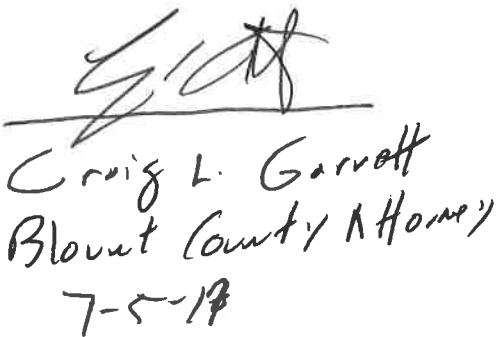 Craig L. Garrett
Blount County Attorney
7-5-17